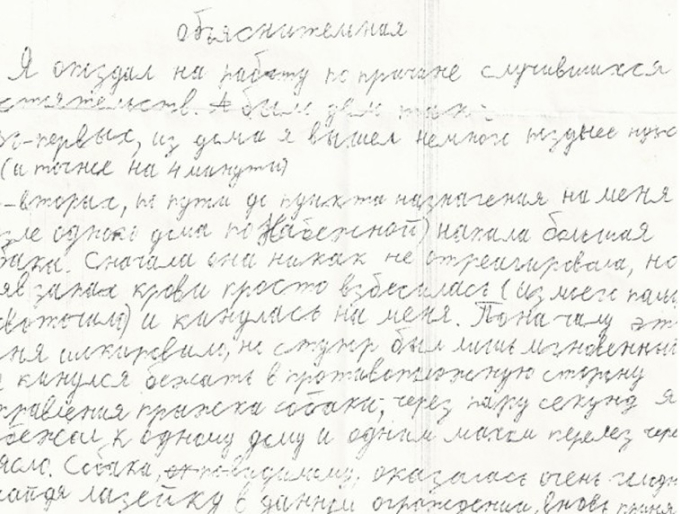 объяснительная
Я опоздал на работу по причине случившихся
стоятельств. А было дело так:
во-первых, из дома я вышел немного позднее
(а точнее на 4 минуты)
-вторых, по пути до пункта назначения на меня
зле одного дома по Набежной) напала большая
бака. Сначала она никак не отреагировала, но
яв запах крови просто взбесилась (из моего
кровоточил) и кинулась на меня. Поначалу эт
ня шокировало, но ступр был лишь мгновенный
я кинулся бежать в противоположную сторону
правления прыжка собаки, через пару секунд я
бежал к одному дому и одним махом перелез чере
ясло. Собака, по-видимому, оказалась очень
найдя лазейку в данном ограждении, вновь